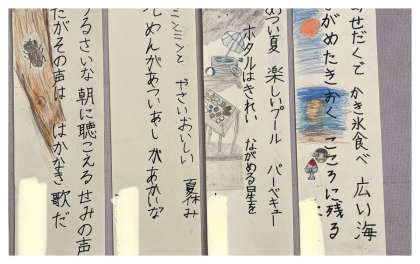 せだくで かき氷食べ 広い海
がめたきおく こころに残る
あつい夏 楽しいプール バーベキュー
ホタルはきれい ながめる星を
ミンミンと やさいおいしい 夏休み
めんがあついあし があかいな
うるさいな 朝に聴こえるせみの声
だがその声は はかなき歌だ